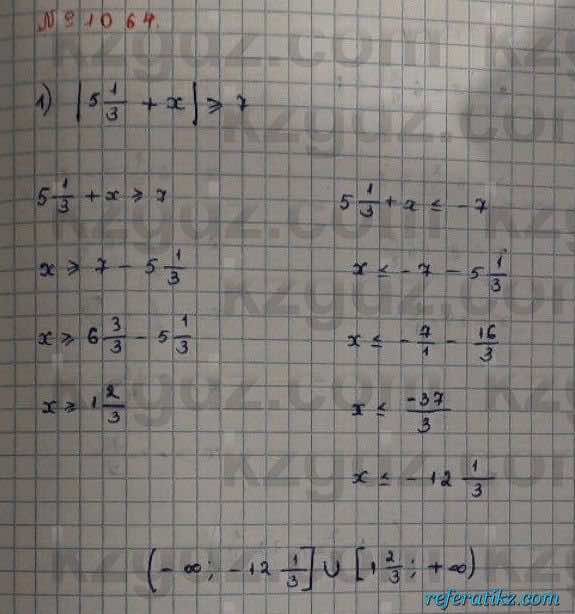 № 1064.
1) |5 1/3 + x| ⩾ 7
5 1/3 + x ⩾ 7
x ⩾ 7 - 5 1/3
x ⩾ 6 3/3 - 5 1/3
x ⩾ 1 2/3
5 1/3 + x ≤ -7
x ≤ -7 - 5 1/3
x ≤ - 7/1 - 16/3
x ≤ -37/3
x ≤ -12 1/3
(-∞; -12 1/3] ∪ [1 2/3; +∞)
kzgdz.com
referatikz.com